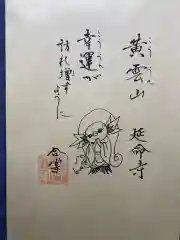 こううん
黄雲山
延命寺
こううん
幸運が
訪れ増す
ように
合掌